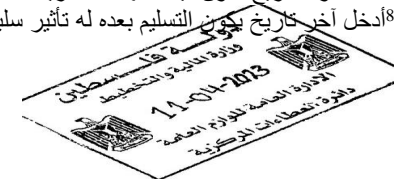 8أدخل آخر تاريخ يكون التسليم بعده له تأثير سلبي
دولة فلسطين
وزارة المالية والتخطيط
11-04-2023
الإدارة العامة للوازم العامة
دائرة العطاءات المركزية